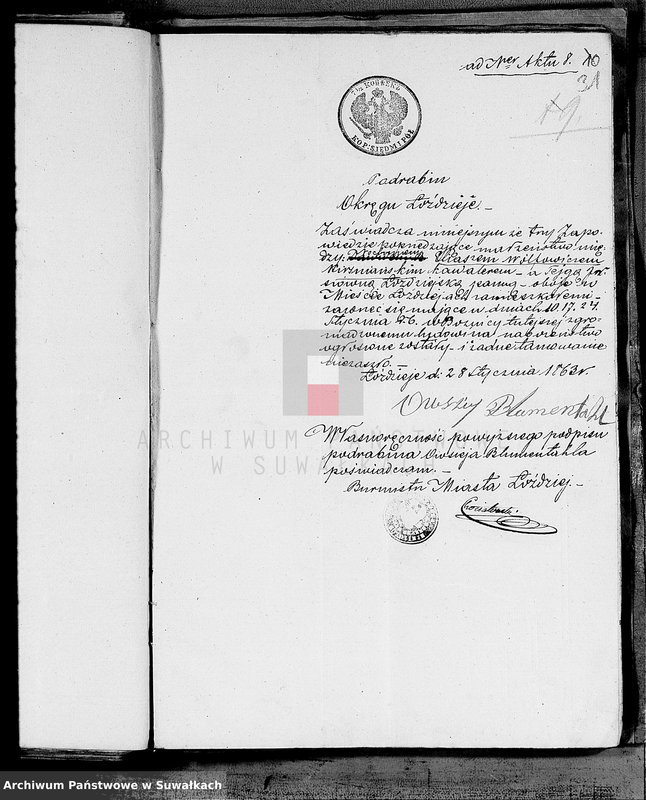 ad Ner Aktu 8. 10
31
7½ КОПѢЕКЪ
KOP: SIEDM I PÓŁ
Podrabin
Okręgu Łoździeje. –
Zaświadcza niniejszym że trzy Zapo-
wiedzie poprzedzające małżeństwo mię-
dzy Eliaszem Wolfowiczem
kawalerem – a Fejgą
Łoździejską panną – oboje w
Mieście Łoździejach zamieszkałemi –
zawrzeć się mające w dniach 10. 17. 24
Stycznia r. b. w Bożnicy tutejszej zgro-
madzonemu ludowi na nabożeństwo
ogłoszone zostały – i żadne tamowanie
niezaszło. –
Łoździeje d: 28 Stycznia 1863 r.
Owsiey Blumenthal
Własnoręczność powyższego podpisu
podrabina Owsieja Blumentahla
poświadczam. –
Burmistrz Miasta Łoździej. –
ARCHIWUM PAŃSTWOWE
W SUWAŁKACH
Archiwum Państwowe w Suwałkach